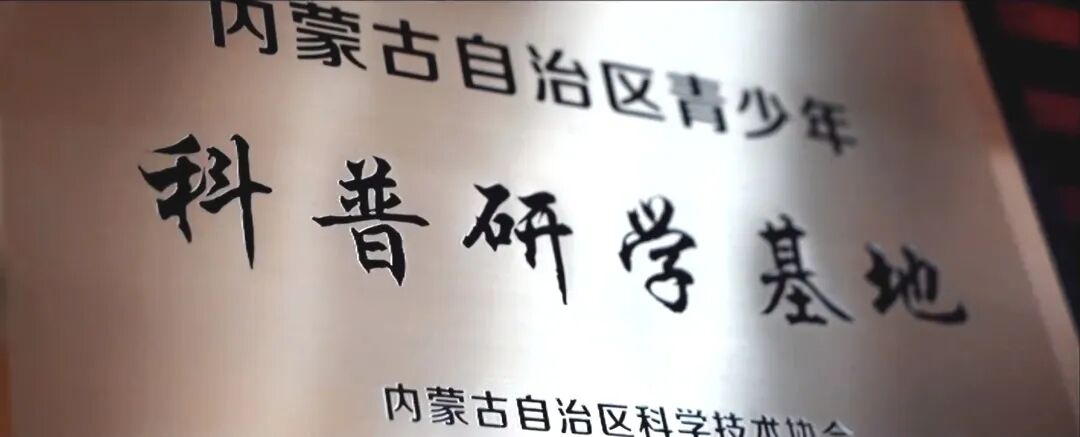 内蒙古自治区青少年
科普研学基地
内蒙古自治区科学技术协会